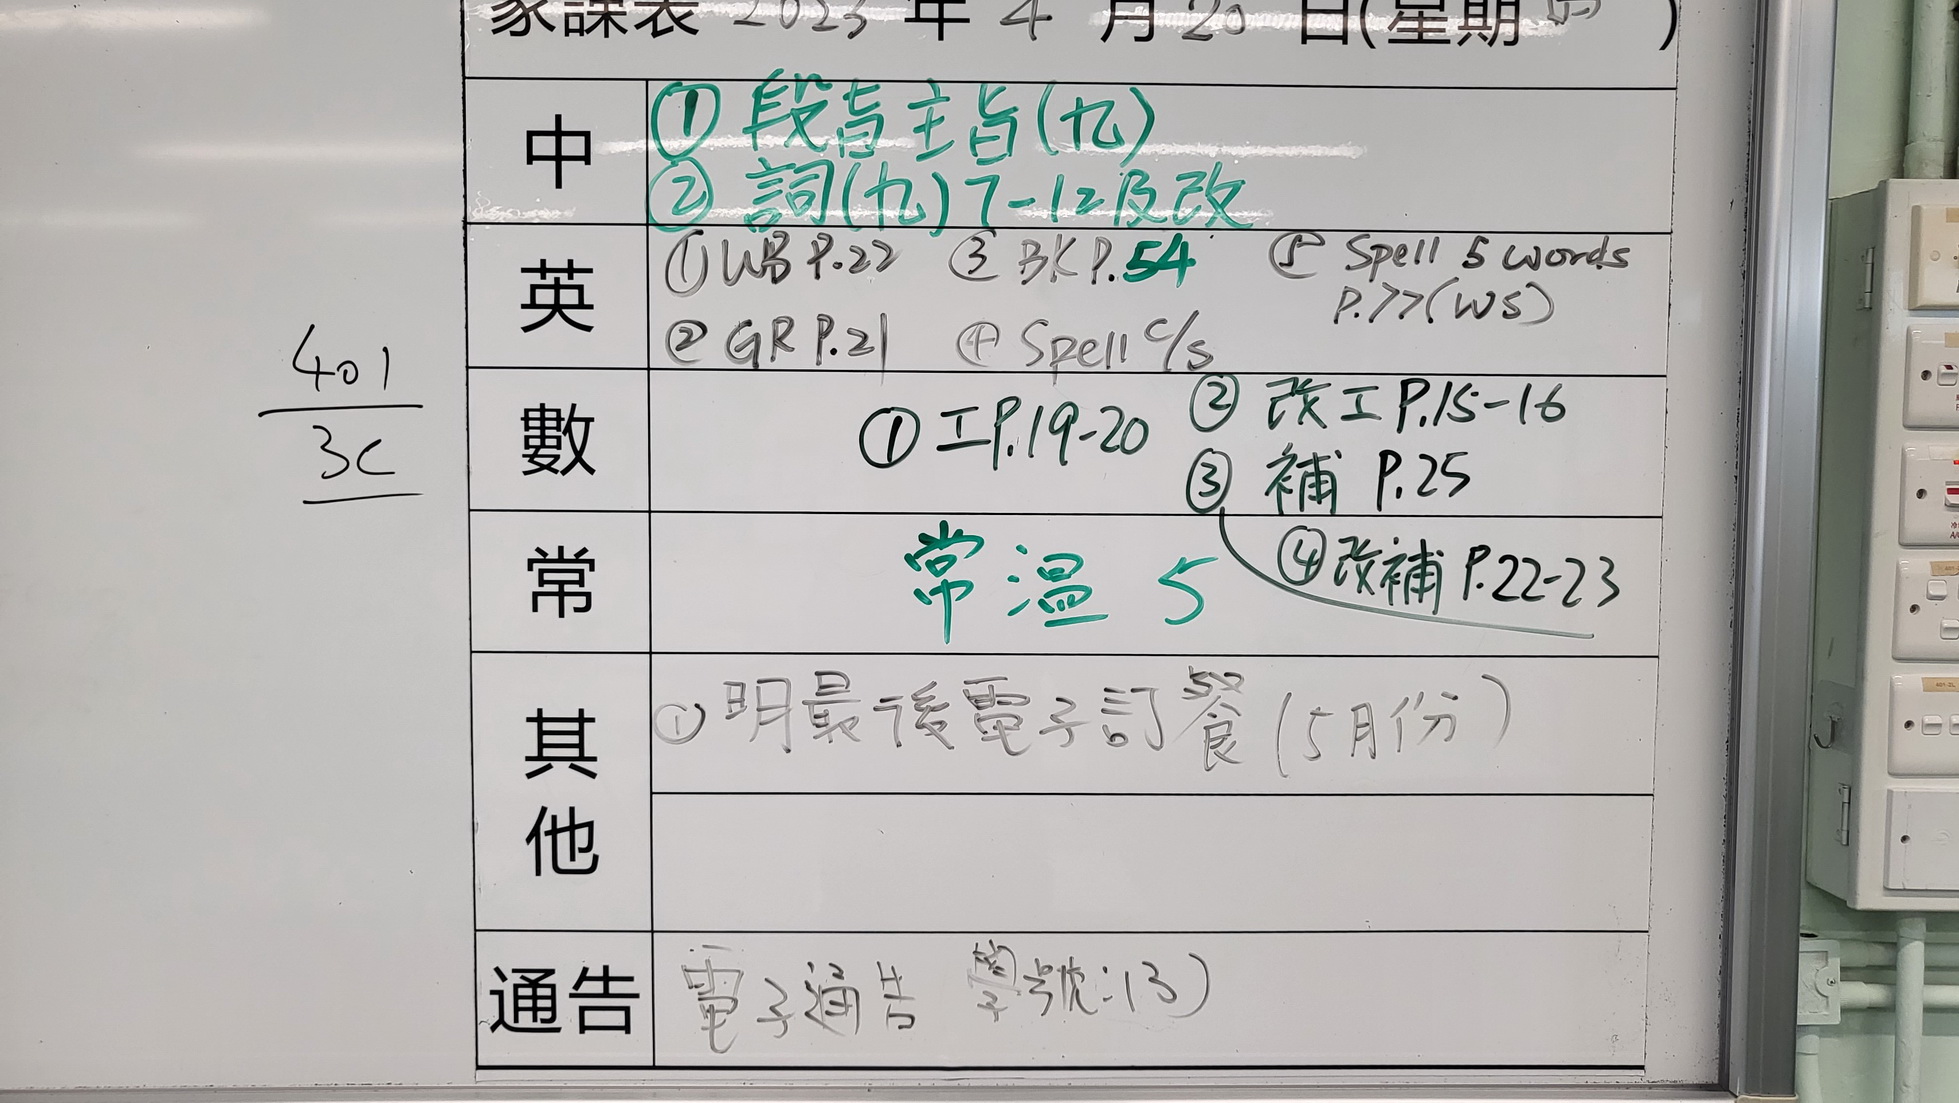 家課表 2023 年 4 月 20 日(星期 四 )
中
① 段旨主旨(九)
② 詞(九) 7-12及改
英
① WB P.22 ③ BK P.54 ⑤ Spell 5 words
P.77(WS)
② GR P.21 ④ Spell c/s
401
3C
數
① 工P.19-20
② 改工P.15-16
③ 補 P.25
④ 改補 P.22-23
常
常溫 5
其他
① 明最後電子訂餐(5月份)
通告
電子通告